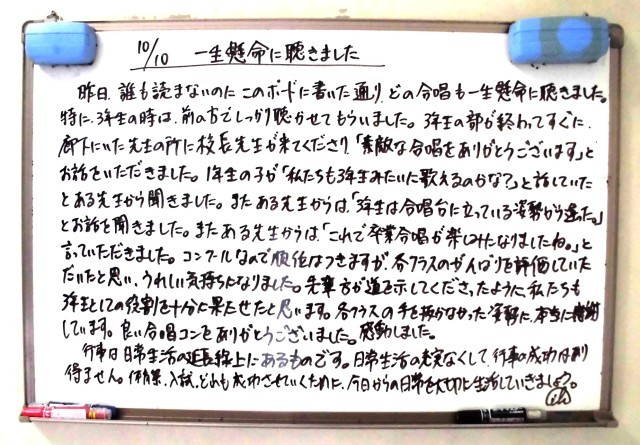 10/10 一生懸命に聴きました
昨日、誰も読まないのにこのボードに書いた通り、どの合唱も一生懸命に聴きました。
特に、3年生の時は、前の方でしっかり聴かせてもらいました。3年生の部が終わってすぐに、
廊下にいた先生の所に校長先生が来てくださり「素敵な合唱をありがとうございます」と
お話をいただきました。1年生の子が「私たちも3年生みたいに歌えるのかな?」と話していた
とある先生から聞きました。またある先生からは、「3年生は合唱台に立っている姿勢から違った。」
とお話を聞きました。またある先生からは「これで卒業合唱が楽しみになりましたね。」と
言っていただきました。コンクールなので順位はつきますが、各クラスのがんばりを評価していた
だいたと思い、うれしい気持ちになりました。先輩方が道を示してくださったように、私たちも
3年生としての役割を十分に果たせたと思います。各クラスの手を抜かなかった姿勢に、本当に感謝
しています。良い合唱コンをありがとうございました。感動しました。
行事は日常生活の延長線上にあるものです。日常生活の充実なくして、行事の成功はあり
得ません。体育祭、入試、どれも成功させていくために、今日からの日常を大切に生活していきましょう。